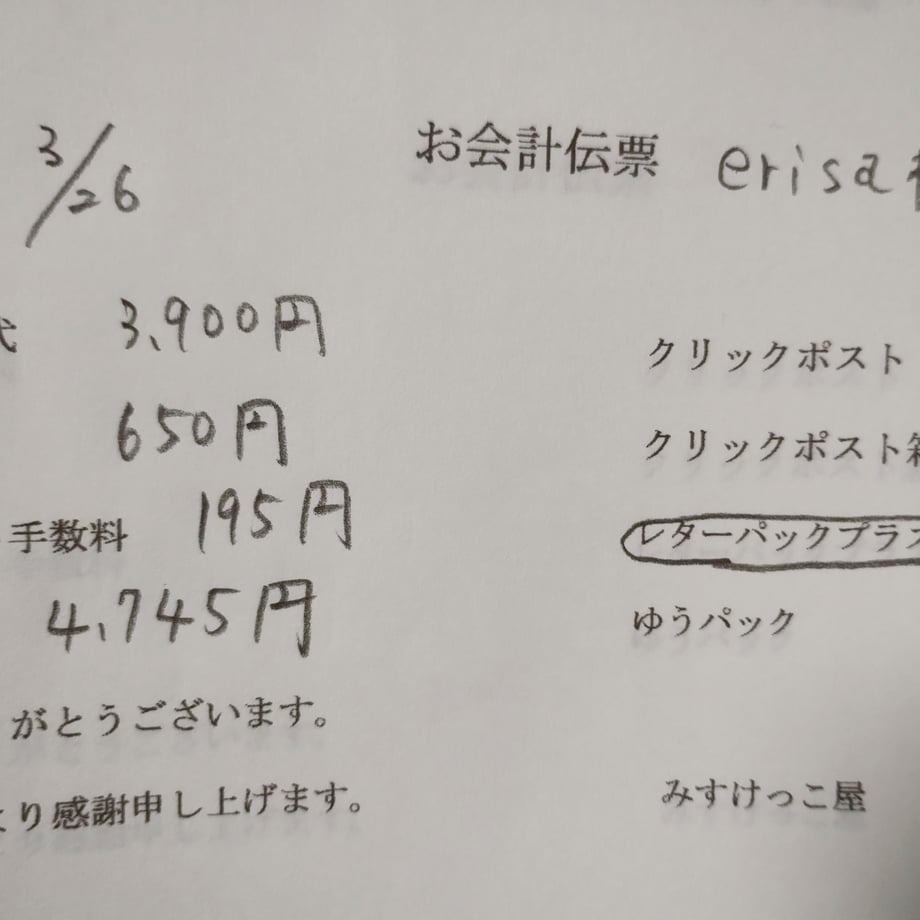 3/26
お会計伝票 erisa様
代 3,900円
650円
手数料 195円
4,745円
がとうございます。
より感謝申し上げます。
クリックポスト
クリックポスト箱
レターパックプラス
ゆうパック
みすけっこ屋